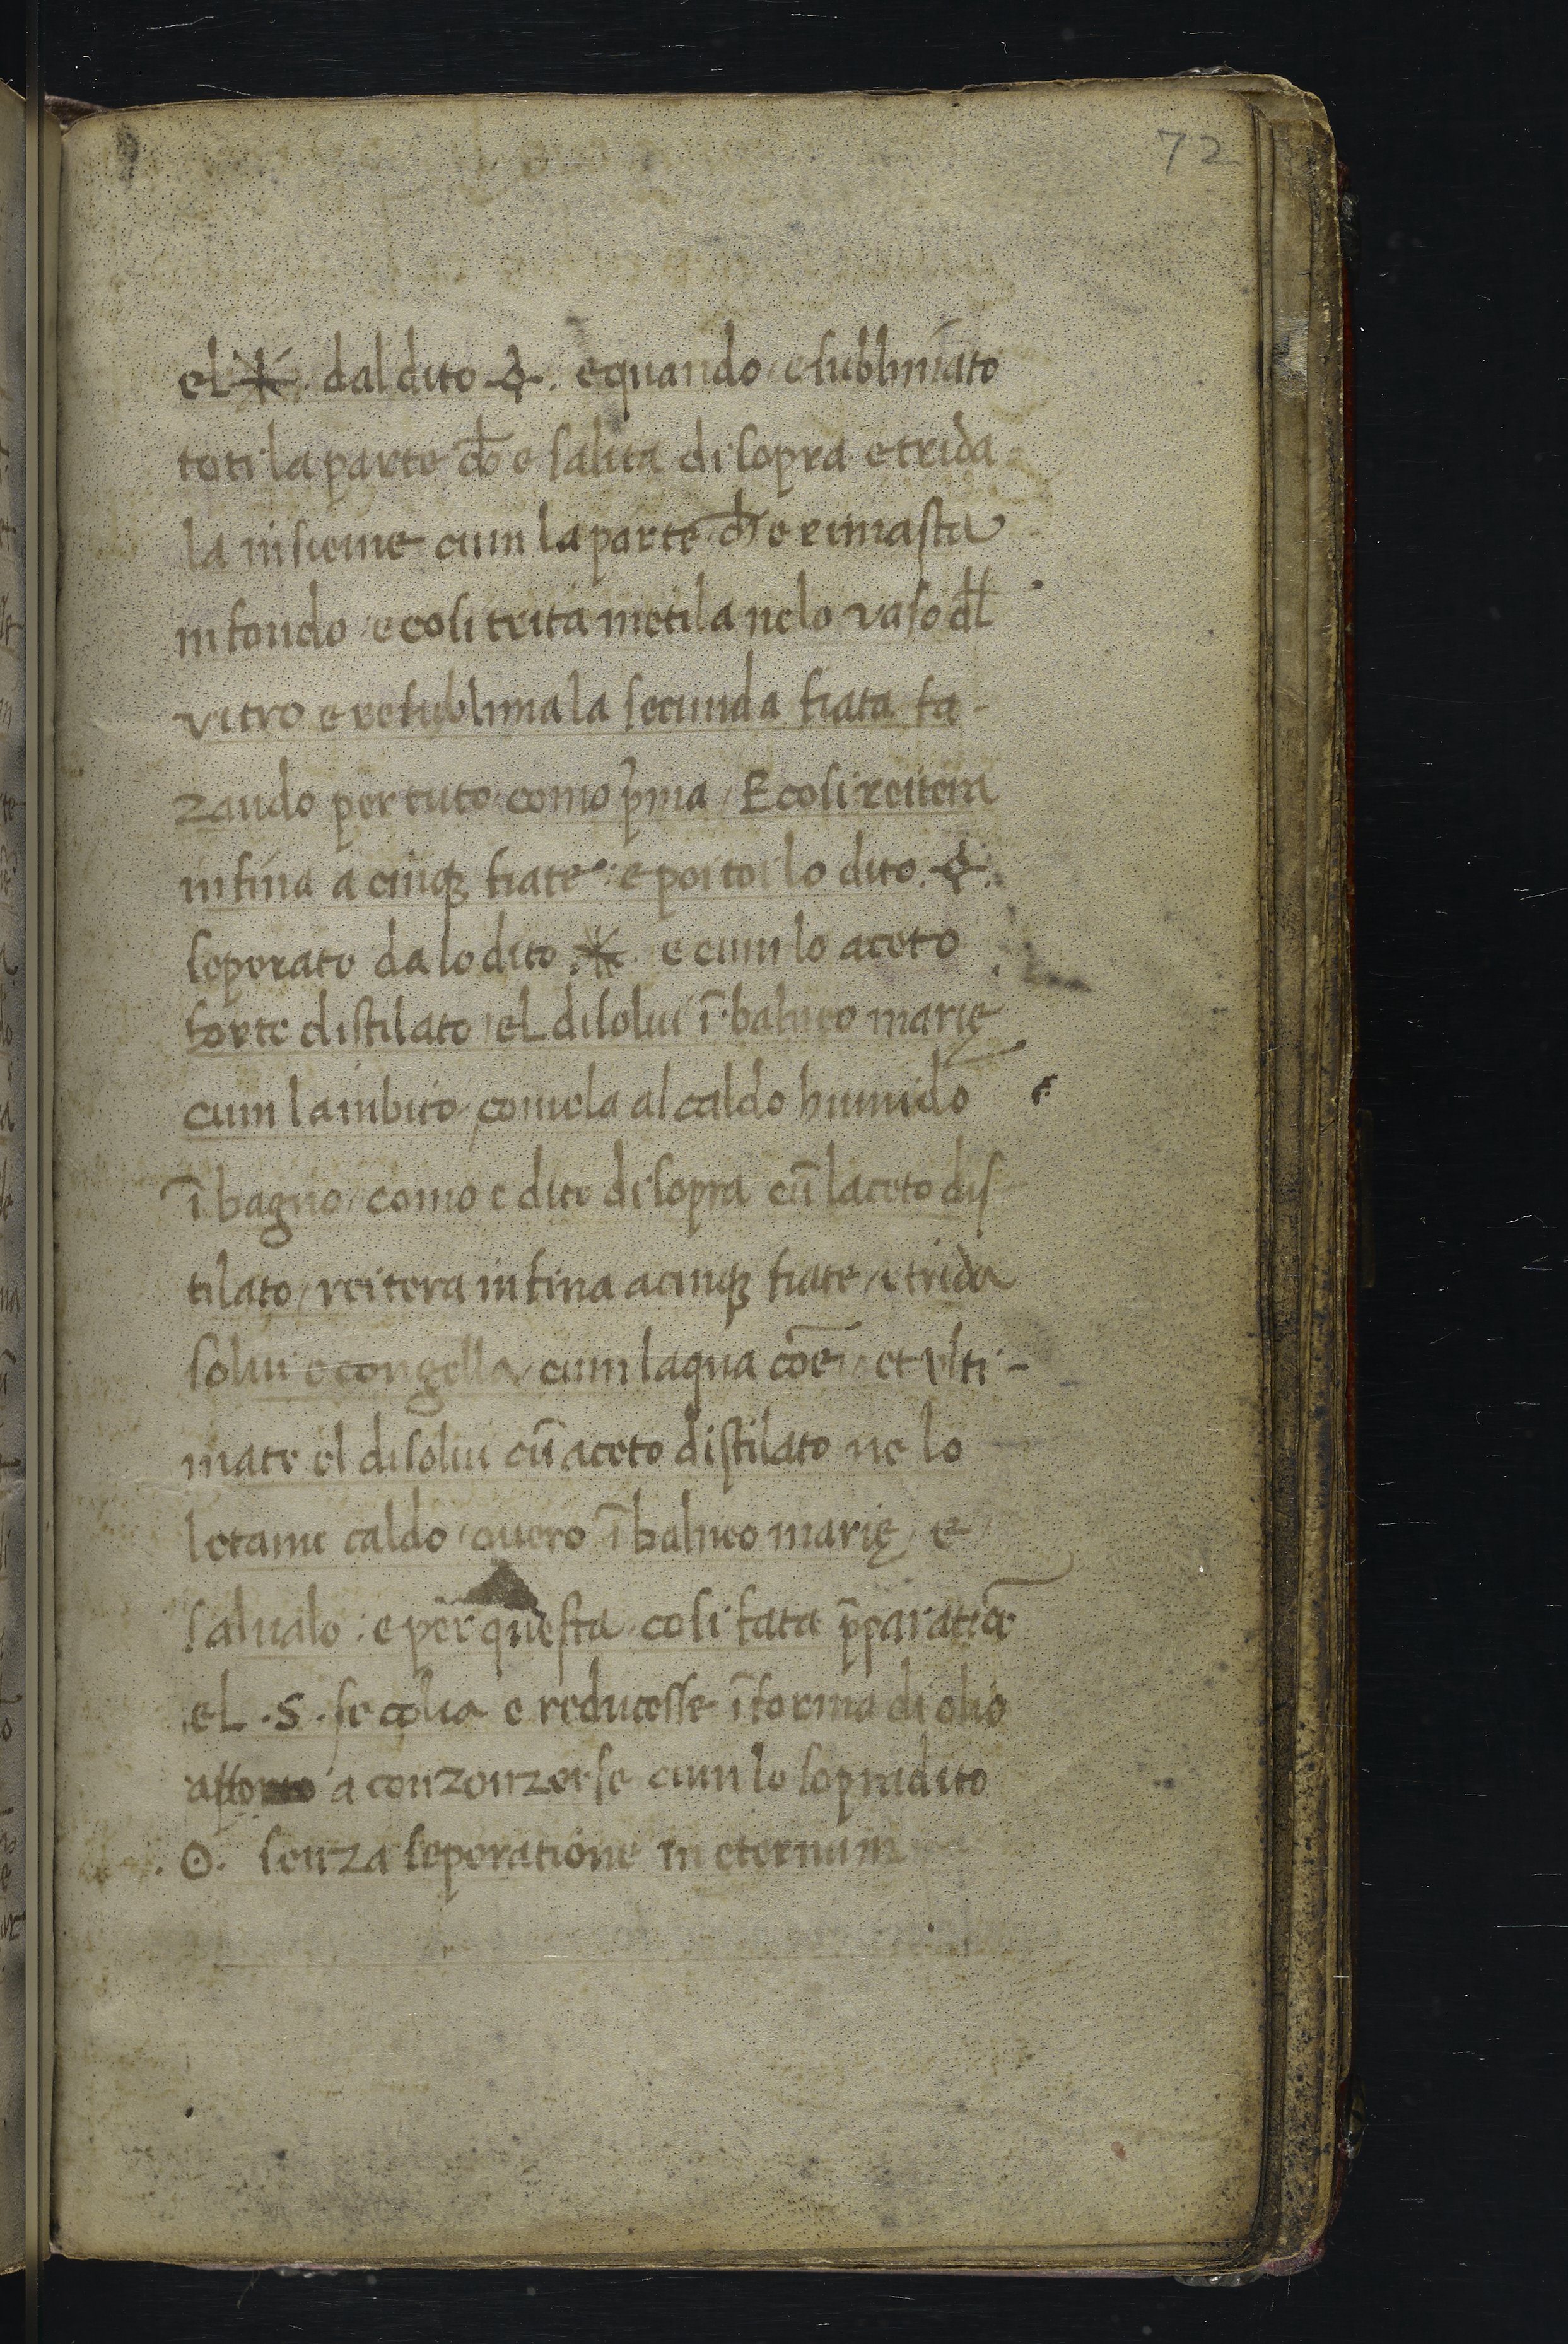 72
el ✶. dal dito 🜍. e quando e sublimato
toti la parte ch̄ e salita di sopra e trida
la insieme cum la parte ch̄ e rimasta
in fondo / e cosi trita metila nelo vaso dl̄
vitro e resublima la secunda fiata fa-
zando per tuto como p̄ma / E cosi reitera
in fina a cinqꝫ fiate: e poi toi lo dito .
seperato da lo dito .✶. e cum lo aceto
forte distilato / el disolui ī balneo marię
cum lambico, al caldo humido
ī bagno / como e dito di sopra cū laceto dis-
tilato / reitera in fina a cinqꝫ fiate / e trida
solui e congella / cum laqua cōe / et vlti-
mate el disolui cū aceto distilato ne lo
letame caldo / ouero ī balneo marię / e
salualo : e per questa cosi fata p̄paratiō
el .S. se e reducesse ī forma di olio
a conzonzerse cum lo sopradito
.☉. senza seperatione in eternum